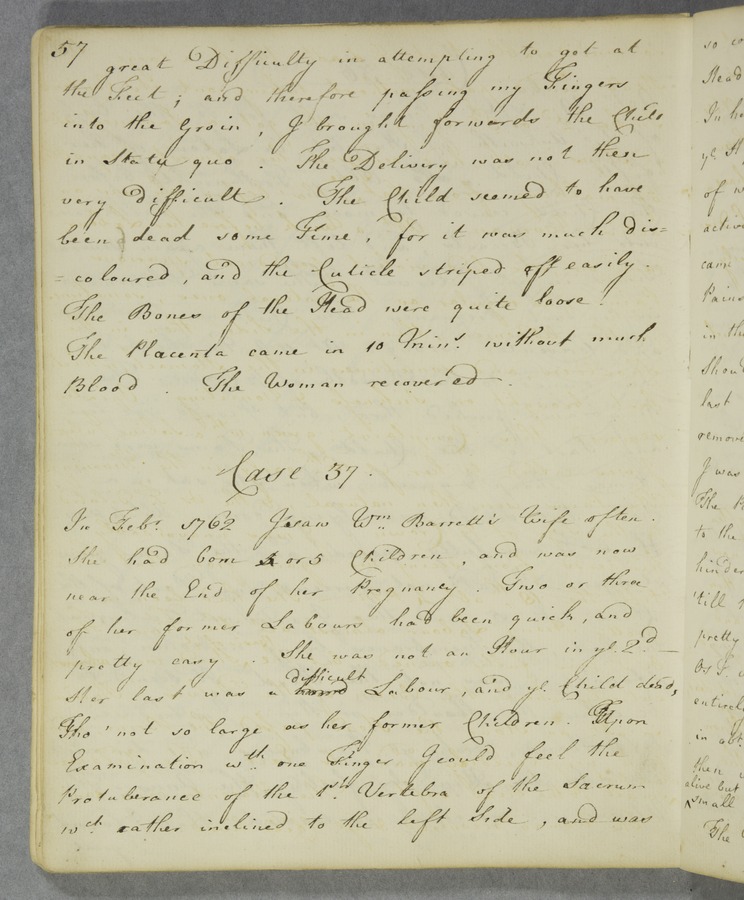 57
great Difficulty in attempting to got at
the Feet ; and therefore passing my Fingers
into the Groin , I brought forwards the Child
in Statu quo . The Delivery was not then
very difficult . The Child seemed to have
been dead some Time , for it was much dis=
=coloured , and the Cuticle striped off easily .
The Bones of the Head were quite loose .
The Placenta came in 10 Mins. without much
Blood . The Woman recovered .
Case 37 .
In Feb. 1762 I saw Wm. Barrett's Wife often .
She had born 4 or 5 Children , and was now
near the End of her Pregnancy . Two or three
of her former Labours had been quick , and
pretty easy . She was not an Hour in ye. 2d —
Her last was a difficult Labour , and ye. Child dead,
Tho' not so large as her former Children . Upon
Examination wth. one Finger I could feel the
Protuberance of the 1st. Vertebra of the Sacrum
wch. rather inclined to the left Side , and was
so
Head
In
of
came
Pains
in
last
I was
to the
hinder
'till
pretty
in
then
alive but
small
The